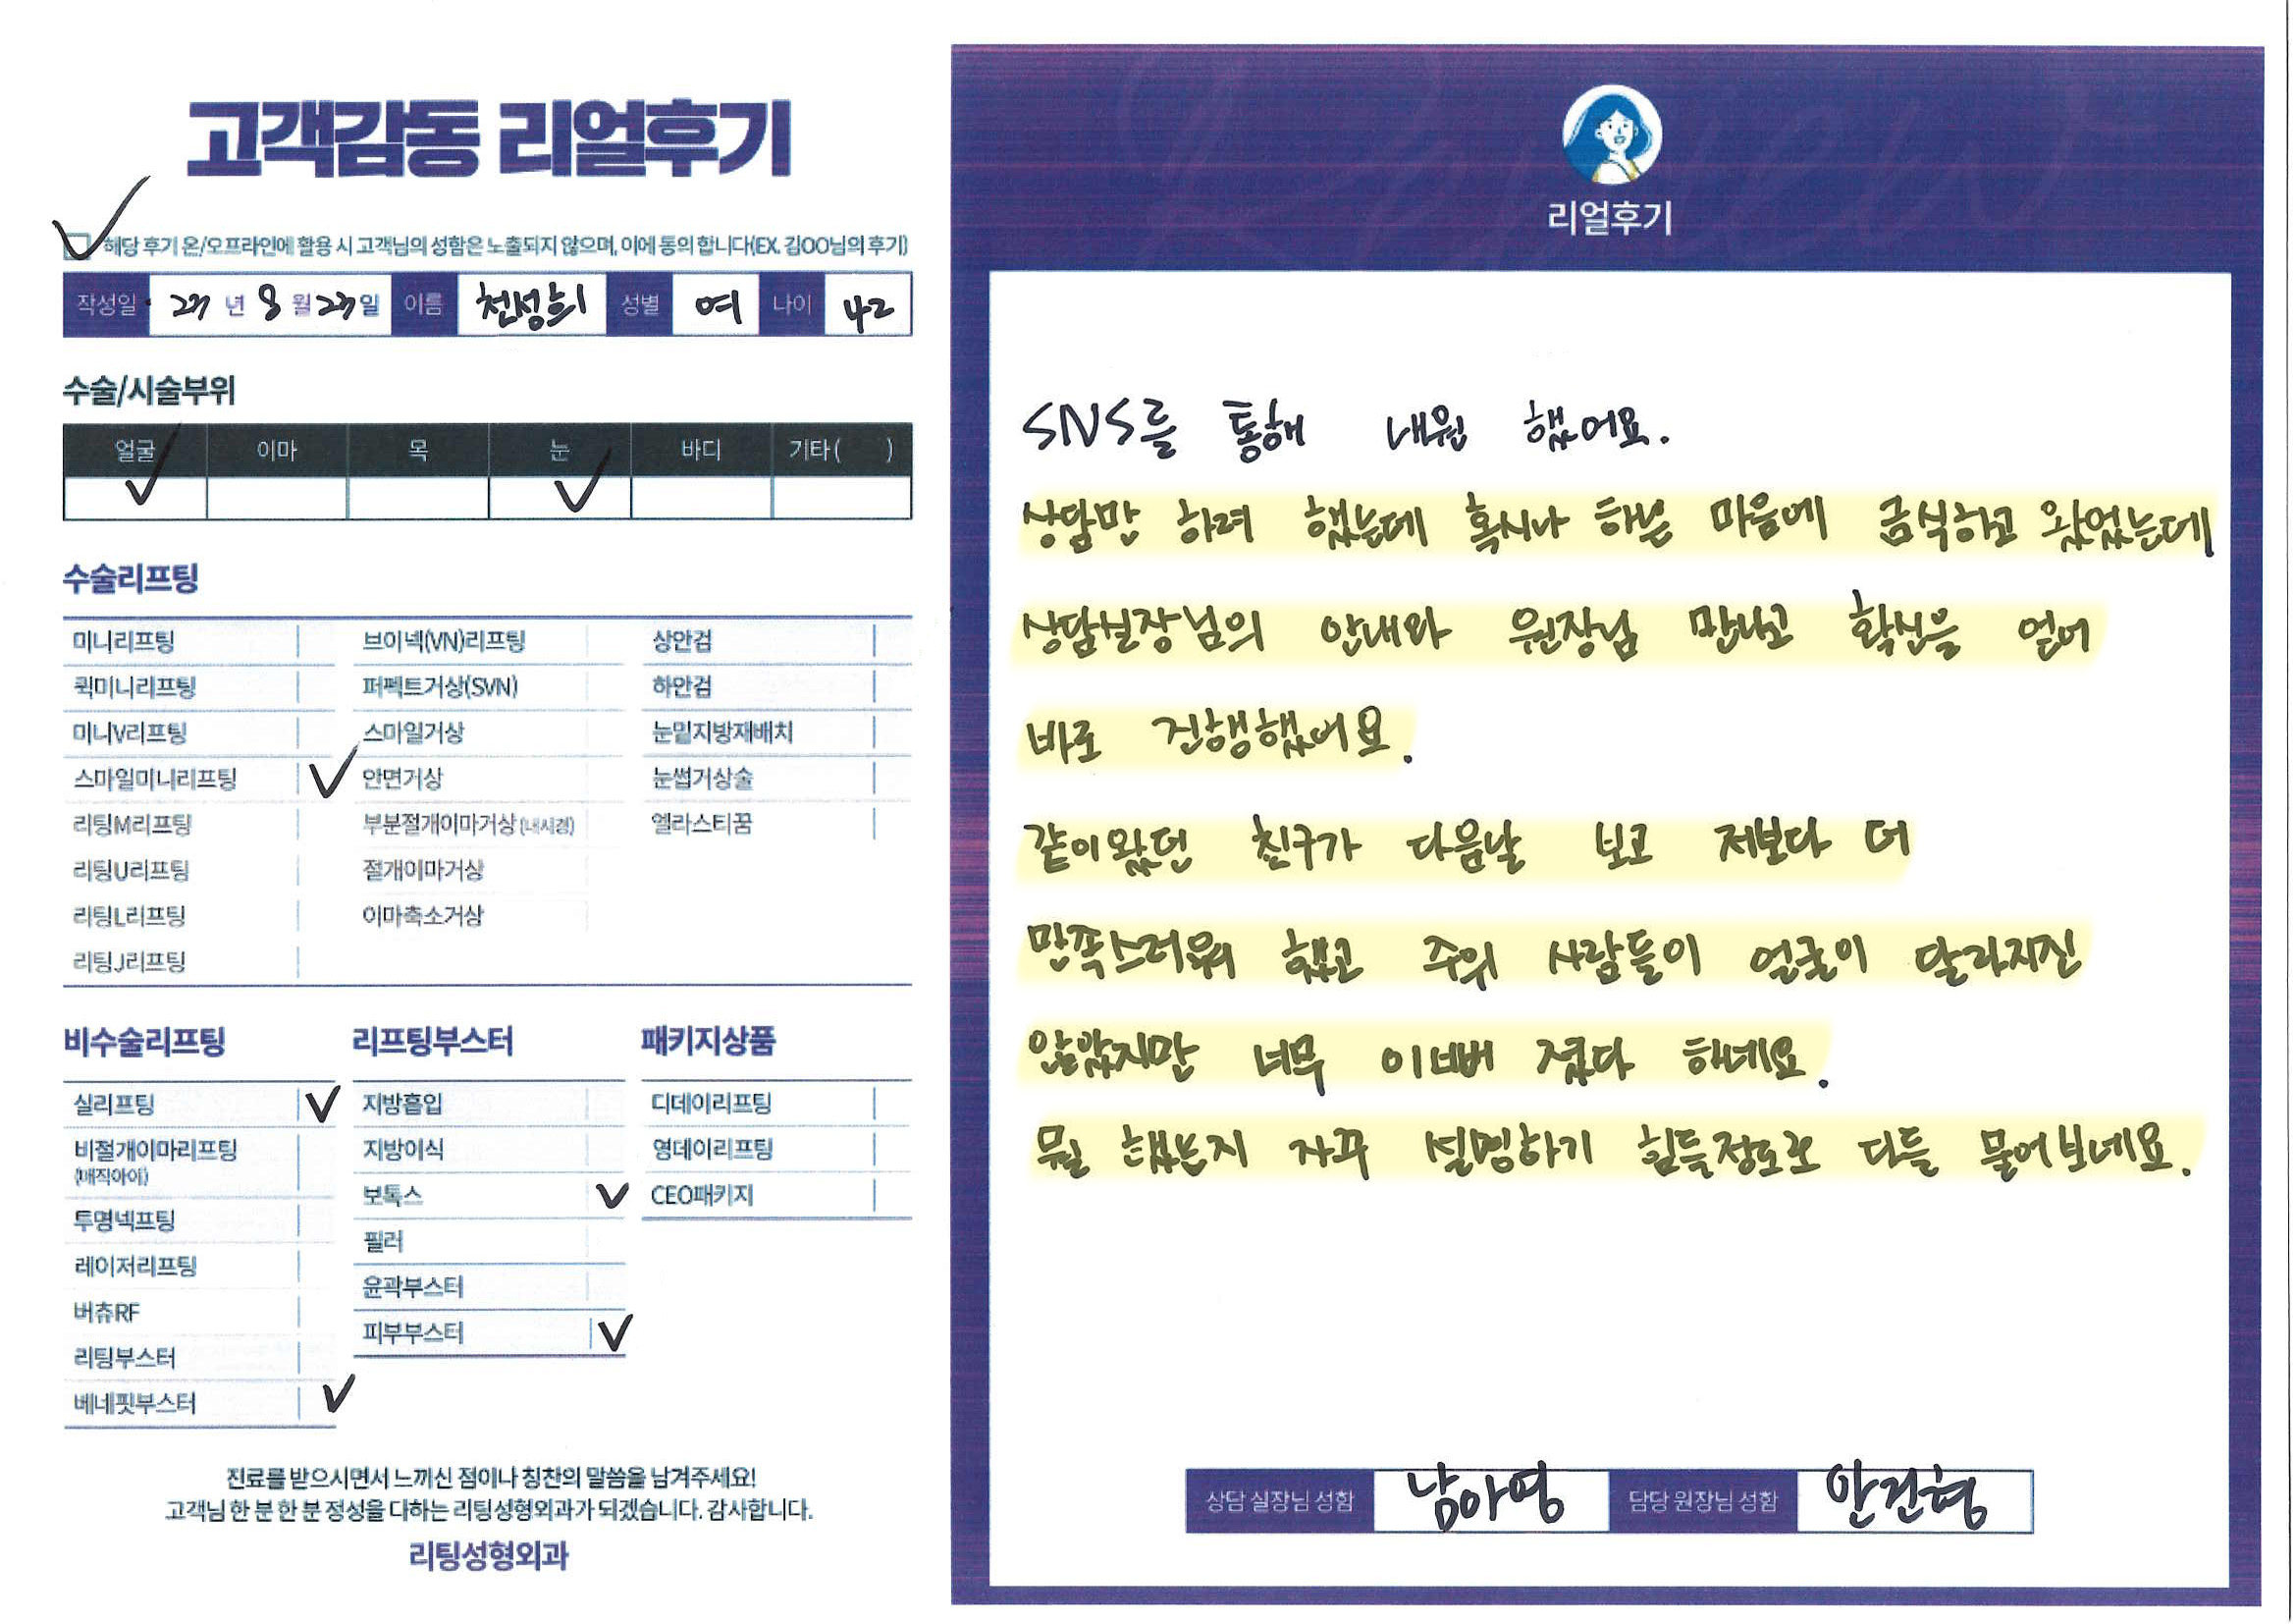 고객감동 리얼후기
해당 후기 온/오프라인에 활용 시 고객님의 성함은 노출되지 않으며, 이에 동의 합니다(EX. 김OO님의 후기)
작성일 23년 8월 23일 이름 천성희 성별 여 나이 42
수술/시술부위
얼굴 이마 목 눈 바디 기타( )
수술리프팅
미니리프팅 브이넥(VN)리프팅 상안검
퀵미니리프팅 퍼펙트거상(SVN) 하안검
미니V리프팅 스마일거상 눈밑지방재배치
스마일미니리프팅 안면거상 눈썹거상술
리팅M리프팅 부분절개이마거상(내시경) 엘라스티꿈
리팅U리프팅 절개이마거상
리팅L리프팅 이마축소거상
리팅J리프팅
비수술리프팅 리프팅부스터 패키지상품
실리프팅 지방흡입 디데이리프팅
비절개이마리프팅 지방이식 영데이리프팅
(매직아이)
보톡스 CEO패키지
투명넥프팅 필러
레이저리프팅 윤곽부스터
버츄RF 피부부스터
리팅부스터
베네핏부스터
진료를 받으시면서 느끼신 점이나 칭찬의 말씀을 남겨주세요!
고객님 한 분 한 분 정성을 다하는 리팅성형외과가 되겠습니다. 감사합니다.
리팅성형외과
리얼후기
SNS를 통해 내원 했어요.
상담만 하려 했는데 혹시나 하는 마음에 금식하고 왔었는데
상담실장님의 안내와 원장님 만나고 확신을 얻어
바로 진행했어요.
같이왔던 친구가 다음날 보고 저보다 더
만족스러워 했고 주위 사람들이 얼굴이 달라지진
않았지만 너무 이뻐 졌다 하네요.
뭘 했는지 자꾸 설명하기 힘들정도로 다들 물어보네요.
상담 실장님 성함 남아영 담당 원장님 성함 안건형